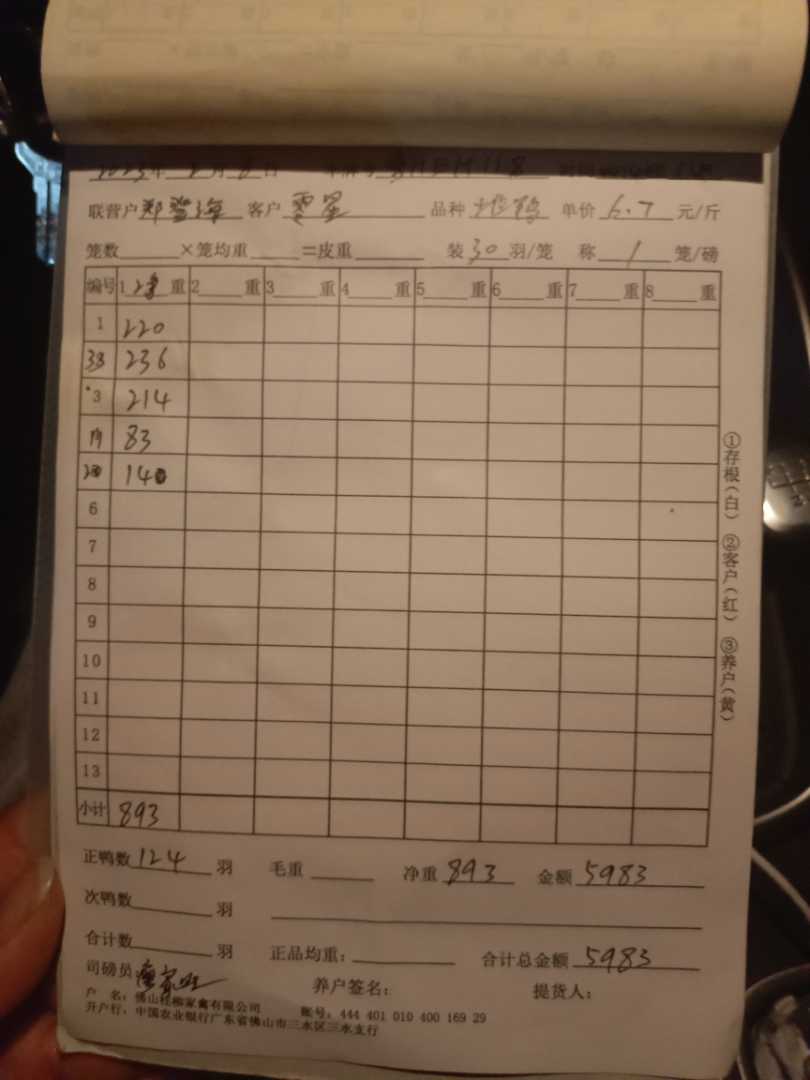 2023年 月 日
联营户 郑登海 客户 零星 品种 单价 6.7 元/斤
笼数 ×笼均重 =皮重 装 30 羽/笼 称 1 笼/磅
编号 1 重 2 重 3 重 4 重 5 重 6 重 7 重 8 重
1 220
33 236
3 214
19 83
20 140
6
7
8
9
10
11
12
13
小计 893
正鸭数 124 羽 毛重 净重 893 金额 5983
次鸭数 羽
合计数 羽 正品均重: 合计总金额 5983
司磅员 养户签名: 提货人:
户 名: 佛山桂柳家禽有限公司 账号: 444 401 010 400 169 29
开户行: 中国农业银行广东省佛山市三水区三水支行
①存根(白) ②客户(红) ③养户(黄)